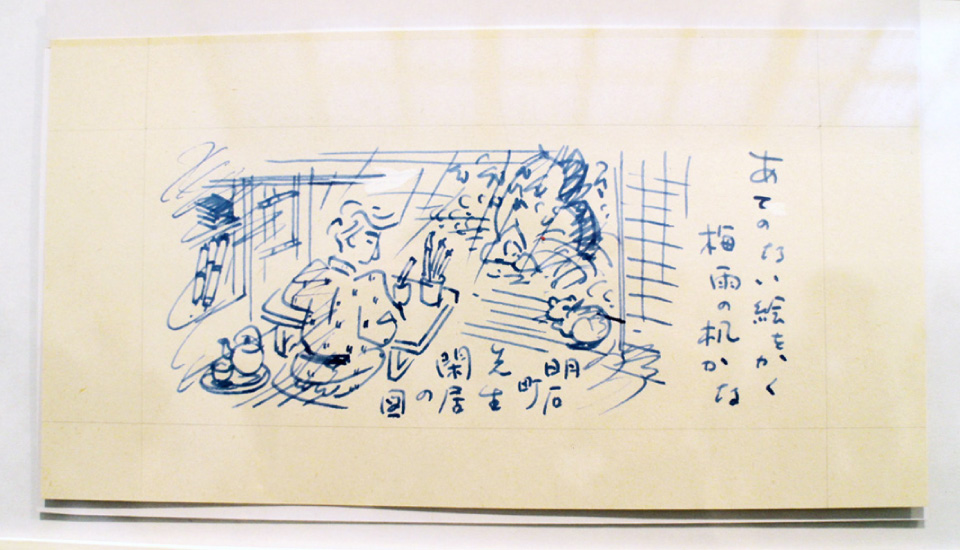 あてのない絵をかく
梅雨の机かな
明石町
先生
閑居
の図